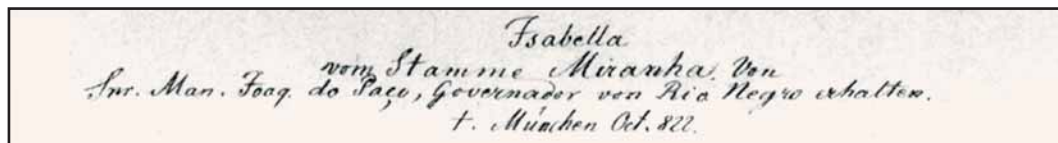 Isabella
vom Stamme Miranha. Von
Snr. Man. Joaq. do Paço, Governador von Rio Negro erhalten.
†. München Oct. 822.